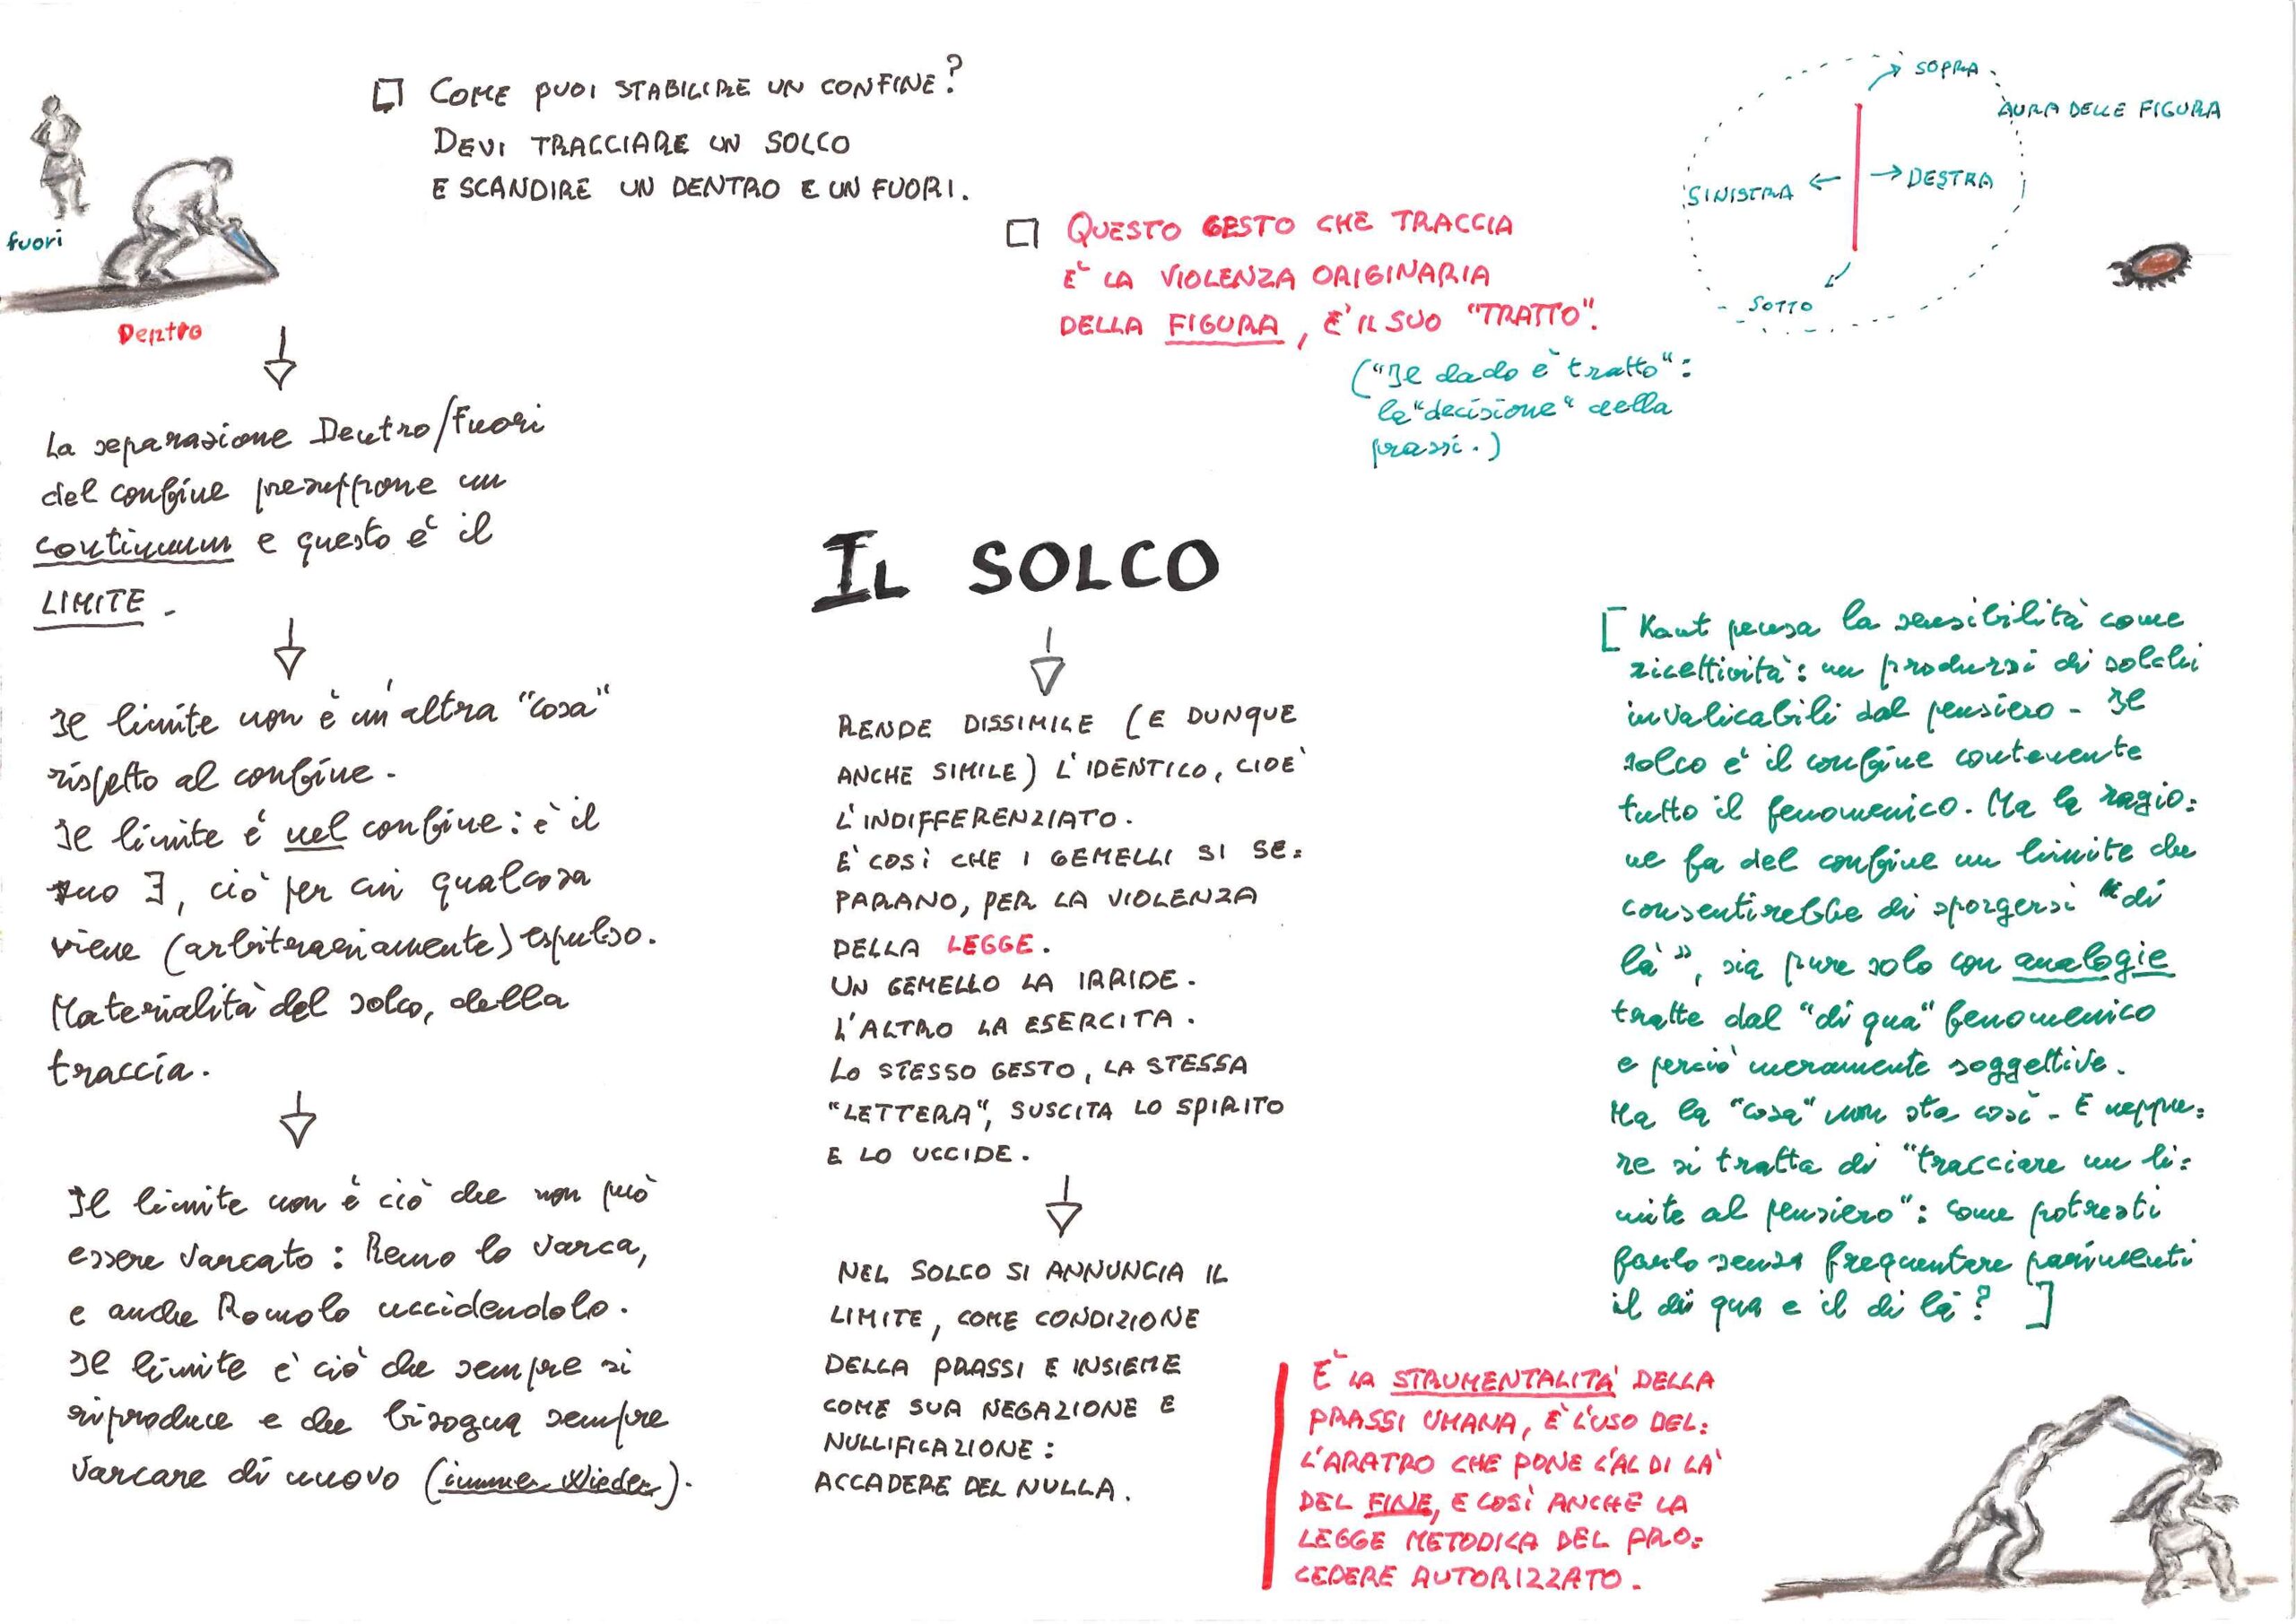 □ COME PUOI STABILIRE UN CONFINE?
DEVI TRACCIARE UN SOLCO
E SCANDIRE UN DENTRO E UN FUORI.
fuori
Dentro
La separazione Dentro/Fuori
del confine presuppone un
continuum e questo è il
LIMITE.
Il limite non è un'altra "cosa"
rispetto al confine.
Il limite è nel confine: è il
suo ∃, ciò per cui qualcosa
viene (arbitrariamente) espulso.
Materialità del solco, della
traccia.
Il limite non è ciò che non può
essere varcato: Remo lo varca,
e anche Romolo uccidendolo.
Il limite è ciò che sempre si
riproduce e che bisogna sempre
varcare di nuovo (immer wieder).
□ QUESTO GESTO CHE TRACCIA
È LA VIOLENZA ORIGINARIA
DELLA FIGURA, È IL SUO "TRATTO".
("Il dado è tratto":
la "decisione" della
prassi.)
SOPRA
AURA DELLE FIGURA
SINISTRA ← → DESTRA
SOTTO
IL SOLCO
RENDE DISSIMILE (E DUNQUE
ANCHE SIMILE) L'IDENTICO, CIOÈ
L'INDIFFERENZIATO.
È COSÌ CHE I GEMELLI SI SE=
PARANO, PER LA VIOLENZA
DELLA LEGGE.
UN GEMELLO LA IRRIDE.
L'ALTRO LA ESERCITA.
LO STESSO GESTO, LA STESSA
"LETTERA", SUSCITA LO SPIRITO
E LO UCCIDE.
NEL SOLCO SI ANNUNCIA IL
LIMITE, COME CONDIZIONE
DELLA PRASSI E INSIEME
COME SUA NEGAZIONE E
NULLIFICAZIONE:
ACCADERE DEL NULLA.
[Kant pensa la sensibilità come
ricettività: un prodursi di solchi
invalicabili dal pensiero - Il
solco è il confine contenente
tutto il fenomenico. Ma la ragio=
ne fa del confine un limite che
consentirebbe di sporgersi "di
là", sia pure solo con analogie
tratte dal "di qua" fenomenico
e perciò meramente soggettive.
Ma la "cosa" non sta così - E neppu=
re si tratta di "tracciare un li=
mite al pensiero": come potresti
farlo senza frequentare parimenti
il di qua e il di là? ]
È LA STRUMENTALITÀ DELLA
PRASSI UMANA, È L'USO DEL=
L'ARATRO CHE PONE L'AL DI LÀ
DEL FINE, E COSÌ ANCHE LA
LEGGE METODICA DEL PRO=
CEDERE AUTORIZZATO.